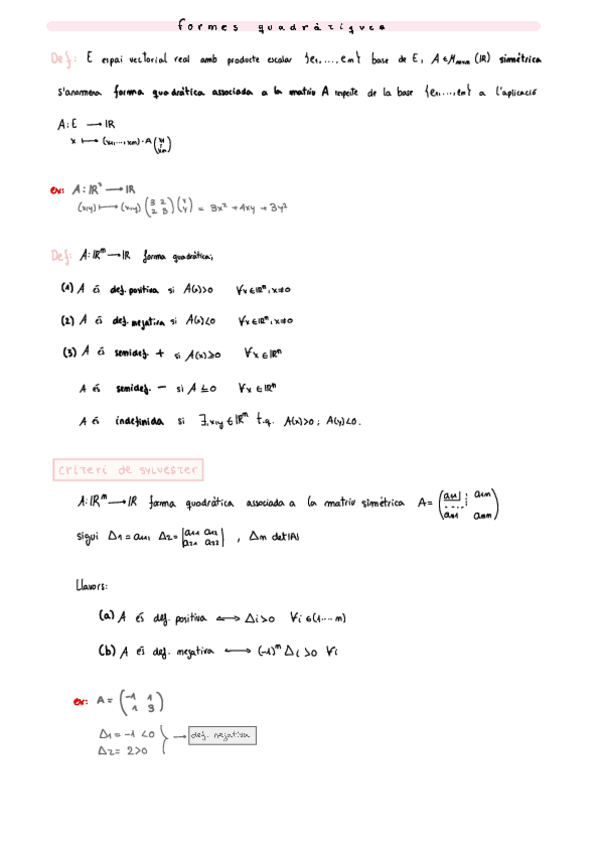 formes quadràtiques
Def: E espai vectorial real amb producte escalar {e1,...,em} base de E, A∈Mmxm(IR) simétrica
s'anomena forma quadràtica associada a la matriu A respecte de la base {e1,...,em} a l'aplicació
A: E → IR
x ↦ (x1,...,xm)·A(x1 ⋮ xm)
ex: A: IR² → IR
(x,y) ↦ (x,y) (3 2 / 2 3) (x / y) = 3x² + 4xy + 3y²
Def: A: IRᵐ → IR forma quadràtica;
(1) A és def. positiva si A(x)>0 ∀x∈IRⁿ, x≠0
(2) A és def. negativa si A(x)<0 ∀x∈IRⁿ, x≠0
(3) A és semidef. + si A(x)≥0 ∀x∈IRⁿ
A és semidef. − si A ≤ 0 ∀x∈IRⁿ
A és indefinida si ∃x,y∈IRᵐ t.q. A(x)>0; A(y)<0.
criteri de sylvester
A: IRᵐ → IR forma quadràtica associada a la matriu simétrica A= (a11 ⋮ a1m / am1 amm)
sigui Δ1 = a11, Δ2 = |a11 a12 / a21 a22|, Δm det|A|
Llavors:
(a) A és def. positiva ⟷ Δi>0 ∀i∈(1...m)
(b) A és def. negativa ⟷ (-1)ᵐ Δi >0 ∀i
ex: A = (-1 1 / 1 3)
Δ1 = -1 <0
Δ2 = 2>0
→ def. negativa